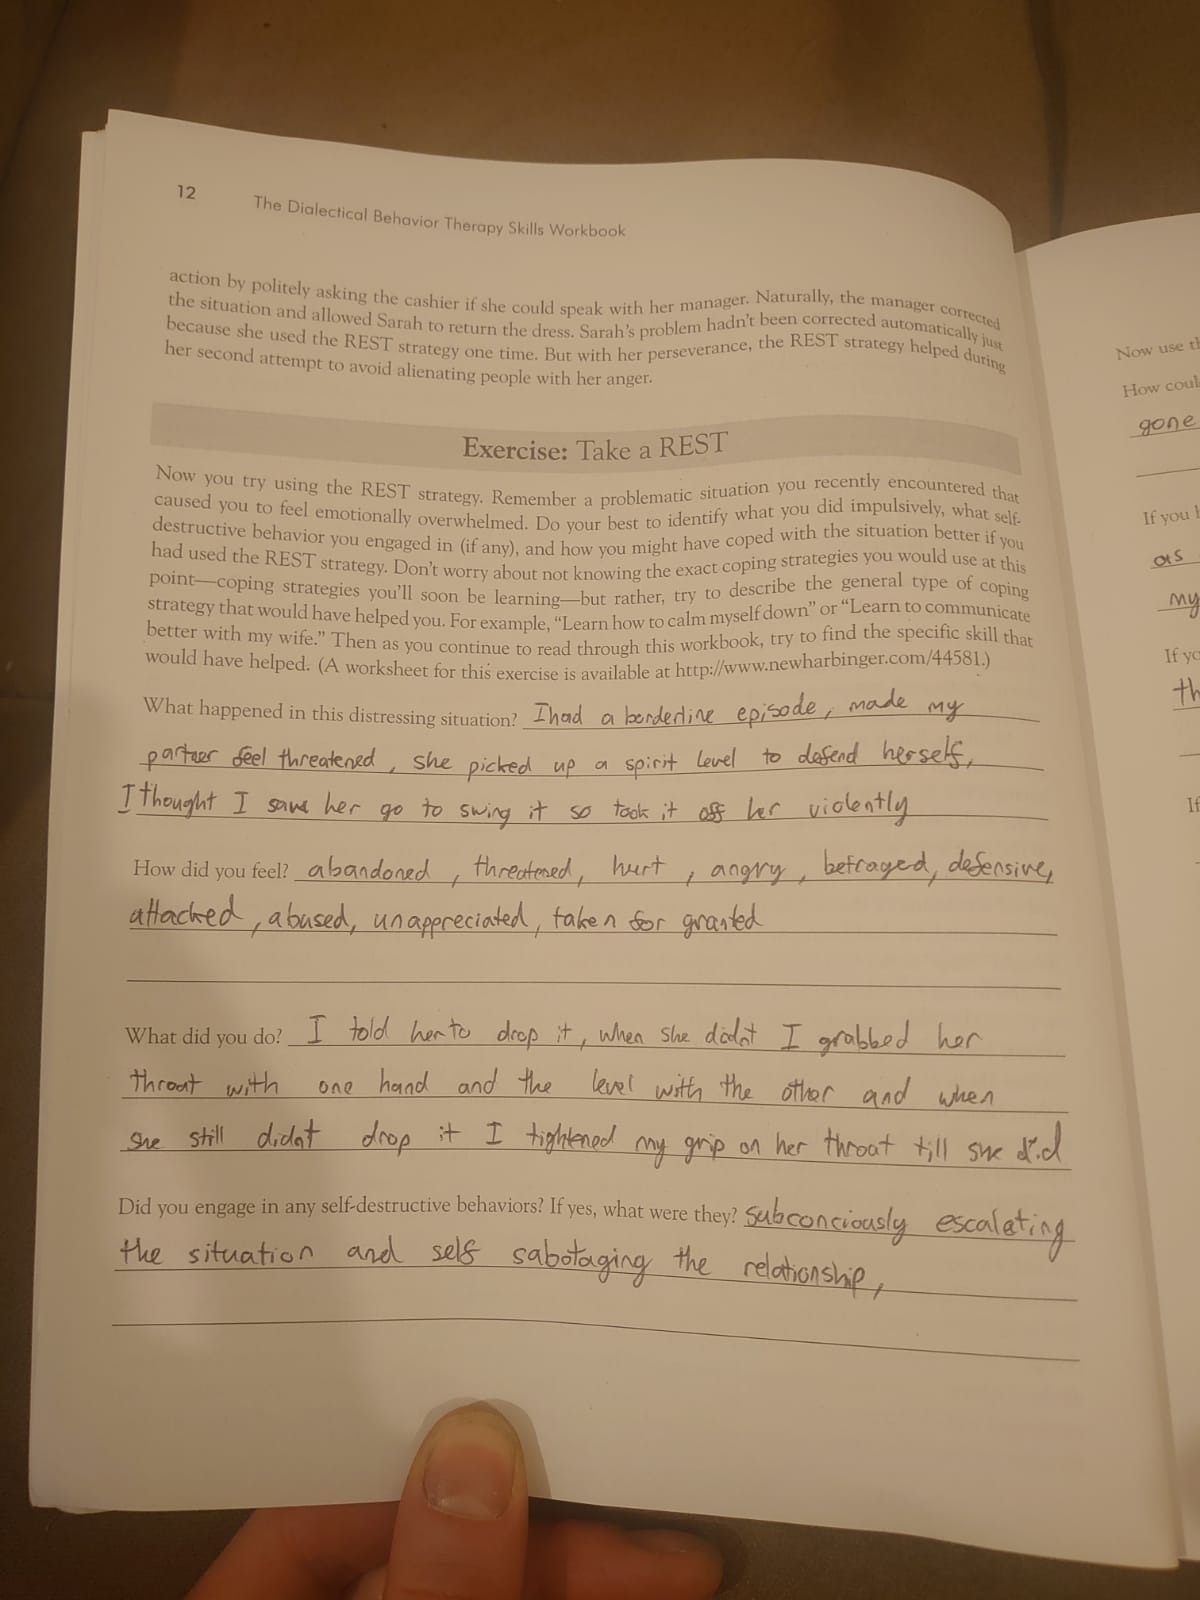 12 The Dialectical Behavior Therapy Skills Workbook
action by politely asking the cashier if she could speak with her manager. Naturally, the manager corrected
the situation and allowed Sarah to return the dress. Sarah's problem hadn't been corrected automatically just
because she used the REST strategy one time. But with her perseverance, the REST strategy helped during
her second attempt to avoid alienating people with her anger.
Exercise: Take a REST
Now you try using the REST strategy. Remember a problematic situation you recently encountered that
caused you to feel emotionally overwhelmed. Do your best to identify what you did impulsively, what self-
destructive behavior you engaged in (if any), and how you might have coped with the situation better if you
had used the REST strategy. Don't worry about not knowing the exact coping strategies you would use at this
point—coping strategies you'll soon be learning—but rather, try to describe the general type of coping
strategy that would have helped you. For example, "Learn how to calm myself down" or "Learn to communicate
better with my wife." Then as you continue to read through this workbook, try to find the specific skill that
would have helped. (A worksheet for this exercise is available at http://www.newharbinger.com/44581.)
What happened in this distressing situation? I had a borderline episode, made my
partner feel threatened, she picked up a spirit level to defend herself,
I thought I saw her go to swing it so took it off her violently
How did you feel? abandoned, threatened, hurt, angry, betrayed, defensive,
attacked, abused, unappreciated, taken for granted
What did you do? I told her to drop it, when she didnt I grabbed her
throat with one hand and the level with the other and when
she still didnt drop it I tightened my grip on her throat till she did
Did you engage in any self-destructive behaviors? If yes, what were they? subconciously escalating
the situation and self sabotaging the relationship,
Now use
How
gone
If you
as
my
If